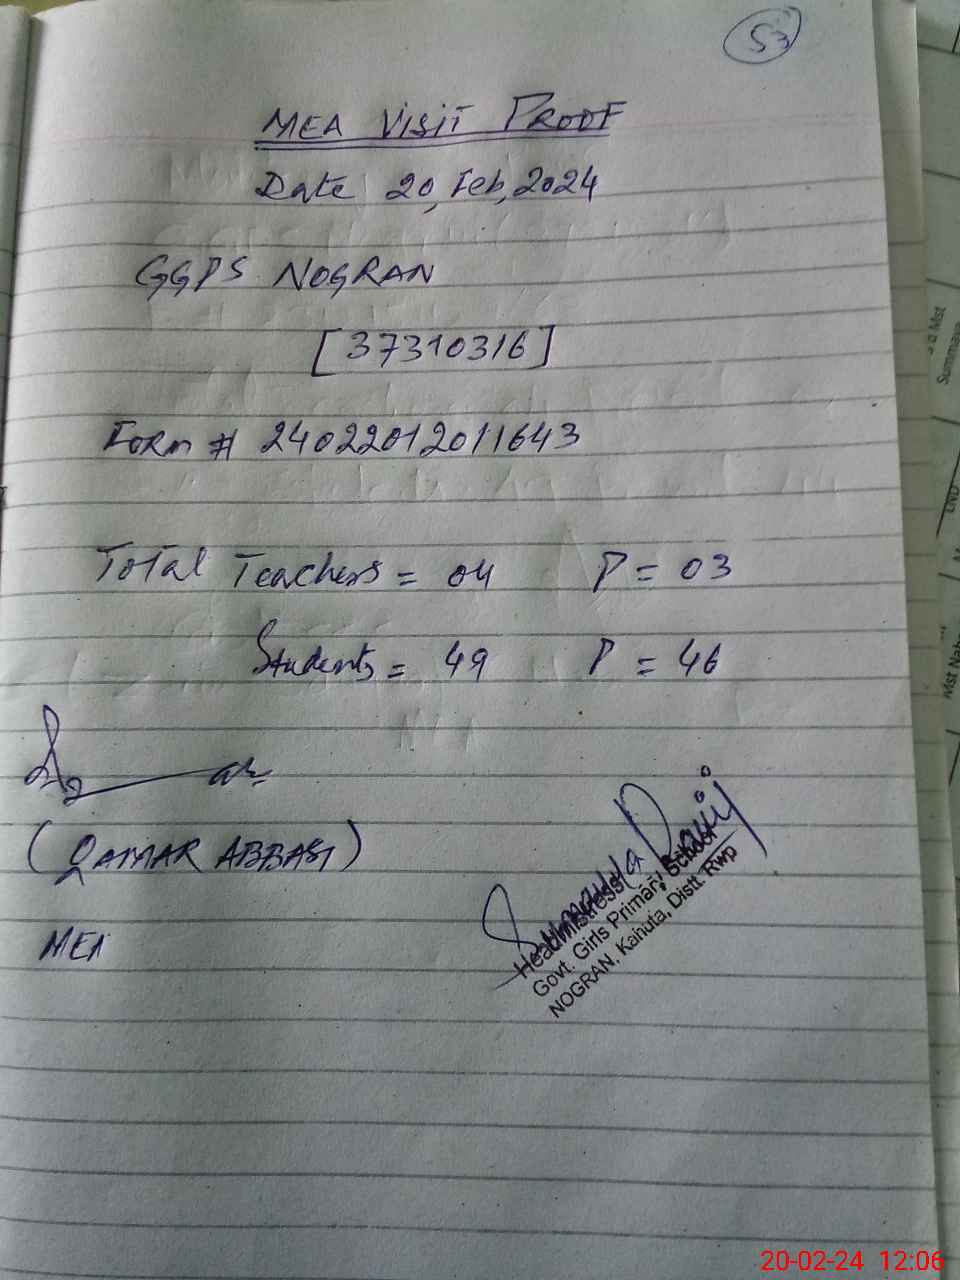 53
MEA Visit Proof
Date 20, Feb, 2024
GGPS NOGRAN
[37310316]
Form # 24022012011643
Total Teachers = 04 P = 03
Students = 49 P = 46
(QAMAR ABBASI)
MEA
Headmistress
Govt. Girls Primary School
NOGRAN, Kahuta, Distt. Rwp
S d Mst
Summaya
LND
Mst
20-02-24 12:06